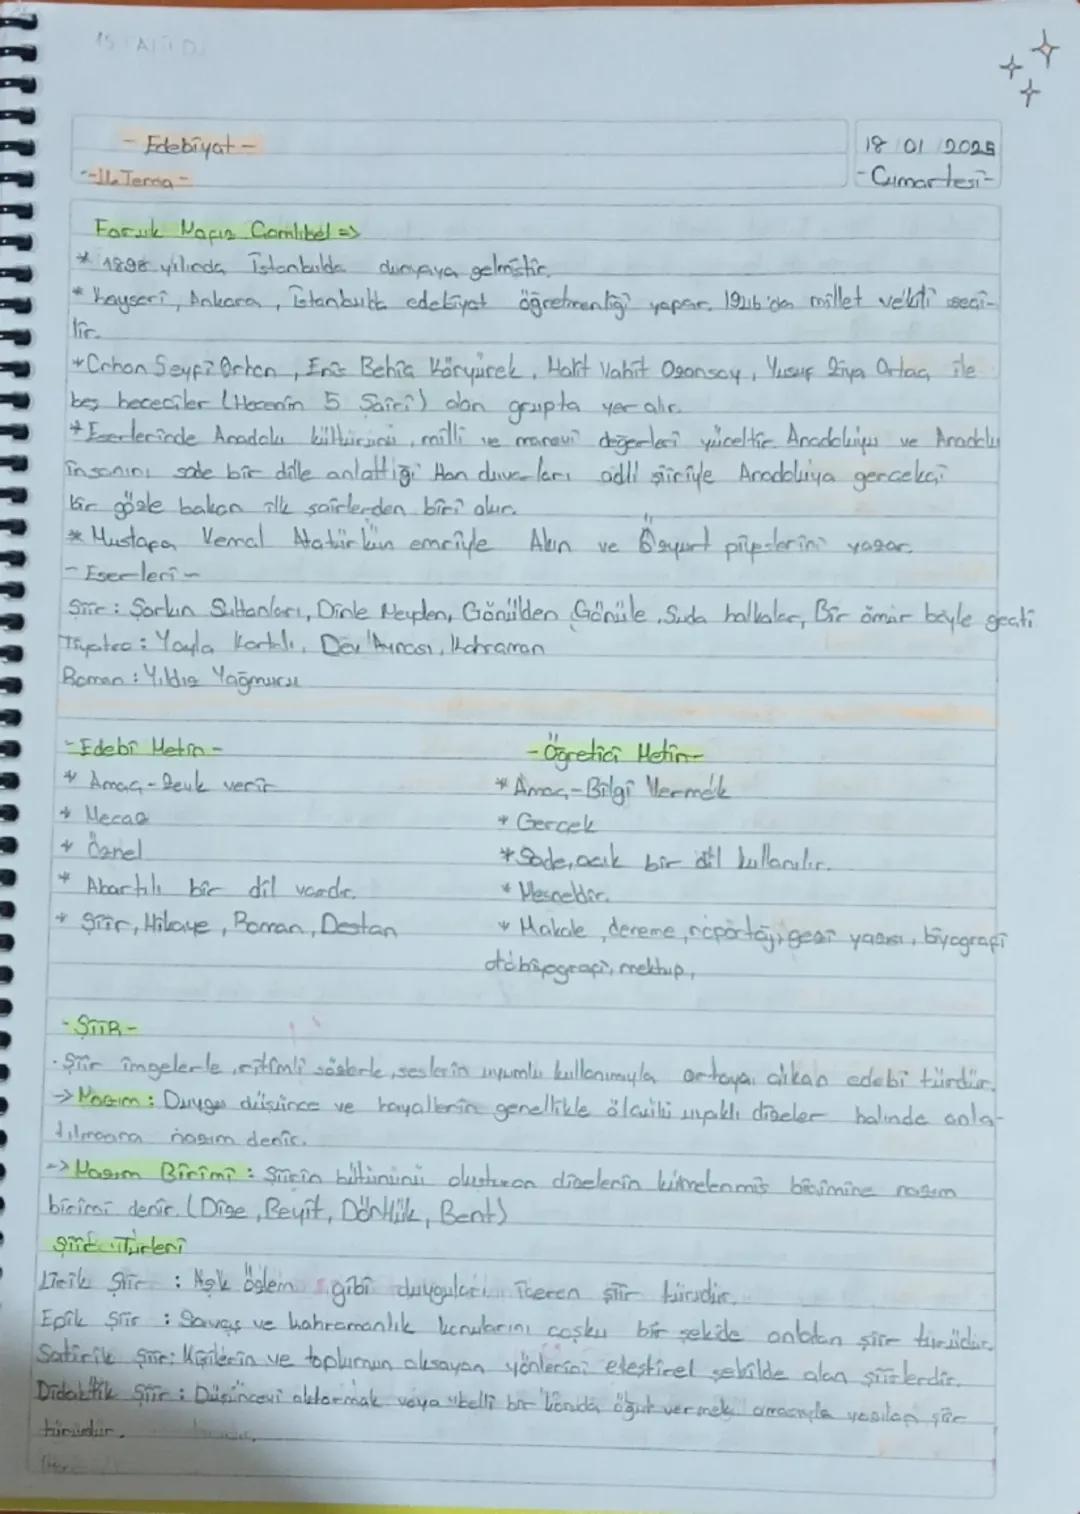 - Edebiyat -
18 01 2025
- II. Tema -
- Cumartesi -
Faruk Nafiz Çamlıbel =>
* 1898 yılında İstanbulda dünyaya gelmiştir.
* Kayseri, Ankara, İstanbulda edebiyat öğretmenliği yapar. 1946'da millet vekili seçi-
lir.
* Orhan Seyfi Orhon, Enis Behiç Köryürek, Halit Vahit Ozansoy, Yusuf Ziya Ortaç ile
beş hececiler (Hecenin 5 Şairi) olan grupta yer alır.
* Eserlerinde Anadolu kültürünü, milli ve manevi değerleri yüceltir. Anadoluyu ve Anadolu
insanını sade bir dille anlattığı Han duvarları adlı şiiriyle Anadoluya gerçekçi
bir gözle bakan ilk şairlerden biri olur.
* Mustafa Kemal Atatürkün emriyle Akın ve Özyurt piyeslerini yazar.
- Eserleri -
Şiir: Şarkın Sultanları, Dinle Neyden, Gönülden Gönüle, Suda halkalar, Bir ömür böyle geçti
Tiyatro: Yayla Kartalı, Dev Aynası, Kahraman
Roman: Yıldız Yağmuru
- Edebi Metin -
* Amaç - Zevk verir
* Mecaz
* Öznel
* Abartılı bir dil vardır.
* Şiir, Hikaye, Roman, Destan
- Öğretici Metin -
* Amaç - Bilgi Vermek
* Gerçek
* Sade, açık bir dil kullanılır.
* Nesneldir.
* Makale, deneme, röportaj, gezi yazısı, biyografi
otobiyografi, mektup,
- ŞİİR -
. Şiir imgelerle, ritimli sözlerle, seslerin uyumlu kullanımıyla ortaya çıkan edebi türdür.
-> Nazım: Duygu düşünce ve hayallerin genellikle ölçülü uyaklı dizeler halinde anla-
tılmasına nazım denir.
-> Nazım Birimi: Şiirin bütününü oluşturan dizelerin kümelenmiş biçimine nazım
birimi denir. (Dize, Beyit, Dörtlük, Bent)
Şiir Türleri
Lirik Şiir : Aşk özlem gibi duyguları içeren şiir türüdür.
Epik Şiir : Savaş ve kahramanlık konularını coşku bir şekilde anlatan şiir türüdür.
Satirik Şiir: Kişilerin ve toplumun aksayan yönlerini eleştirel şekilde alan şiirlerdir.
Didaktik Şiir: Düşünceyi aktarmak veya belli bir konuda öğüt vermek amacıyla yazılan şiir
türüdür.